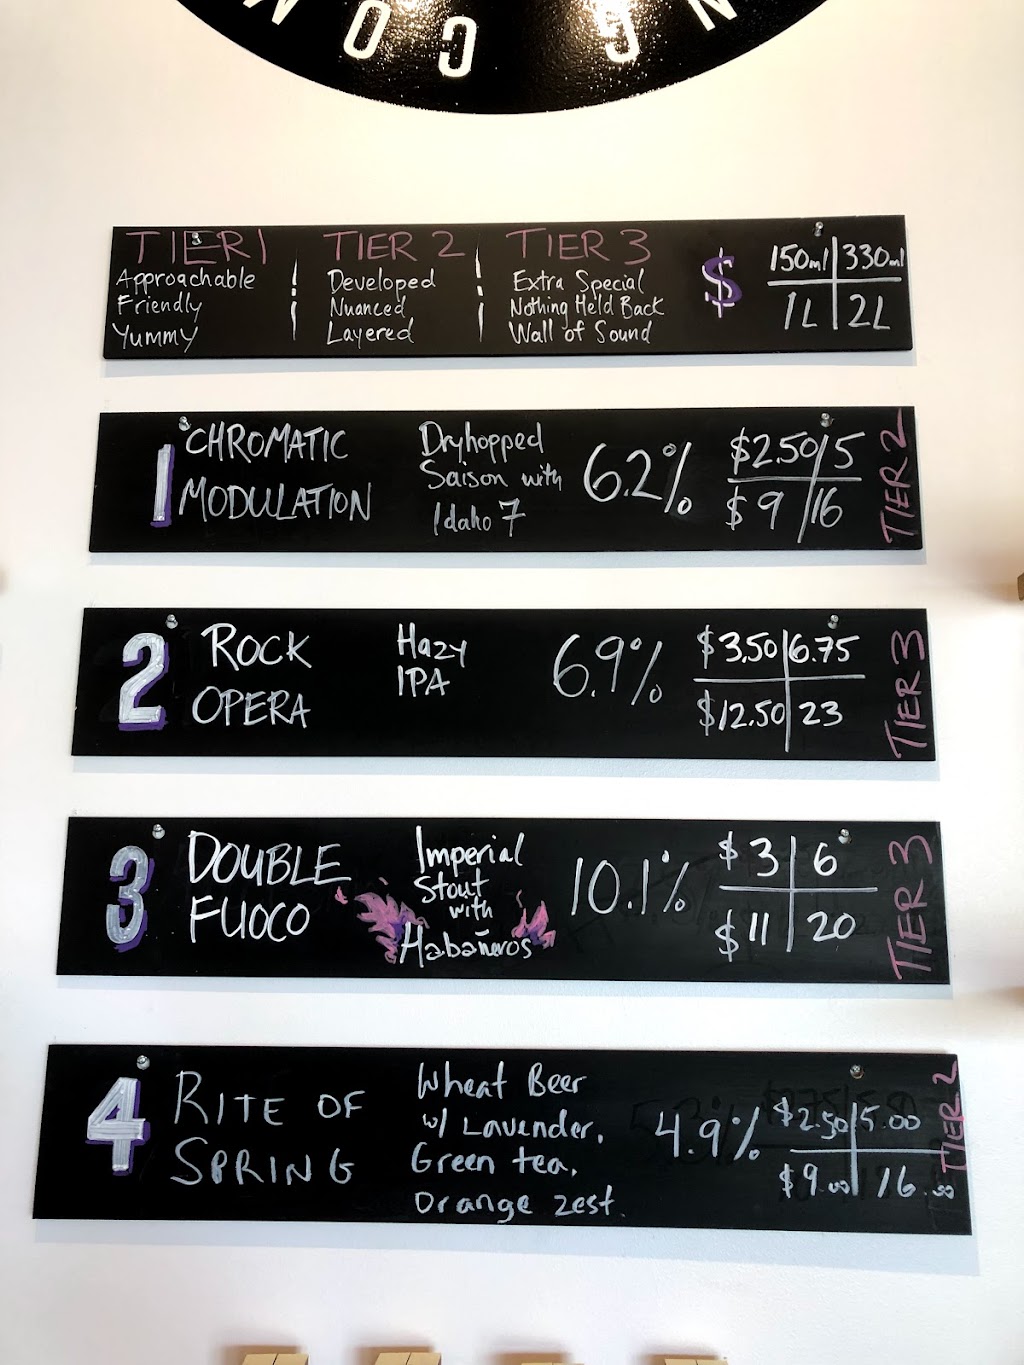 NG CO
TIER 1
Approachable
Friendly
Yummy
TIER 2
Developed
Nuanced
Layered
TIER 3
Extra Special
Nothing Held Back
Wall of Sound
$
150ml 330ml
1L 2L
1
CHROMATIC
MODULATION
Dryhopped
Saison with
Idaho 7
6.2%
$2.50 5
$9 16
TIER 2
2
ROCK
OPERA
Hazy
IPA
6.9%
$3.50 6.75
$12.50 23
TIER 3
3
DOUBLE
FUOCO
Imperial
Stout
with
Habañeros
10.1%
$3 6
$11 20
TIER 3
4
RITE OF
SPRING
Wheat Beer
w/ Lavender,
Green tea,
Orange zest.
4.9%
$2.50 5.00
$9.00 16.00
TIER 2